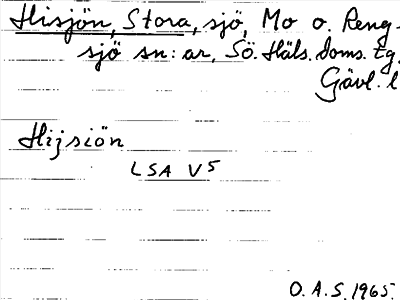 Hisjön, Stora, sjö, Mo o. Reng-
sjö sn:ar, Sö. Häls. doms. tg,
Gävl. l
Hijsiön
LSA V5
O.A.S. 1965.